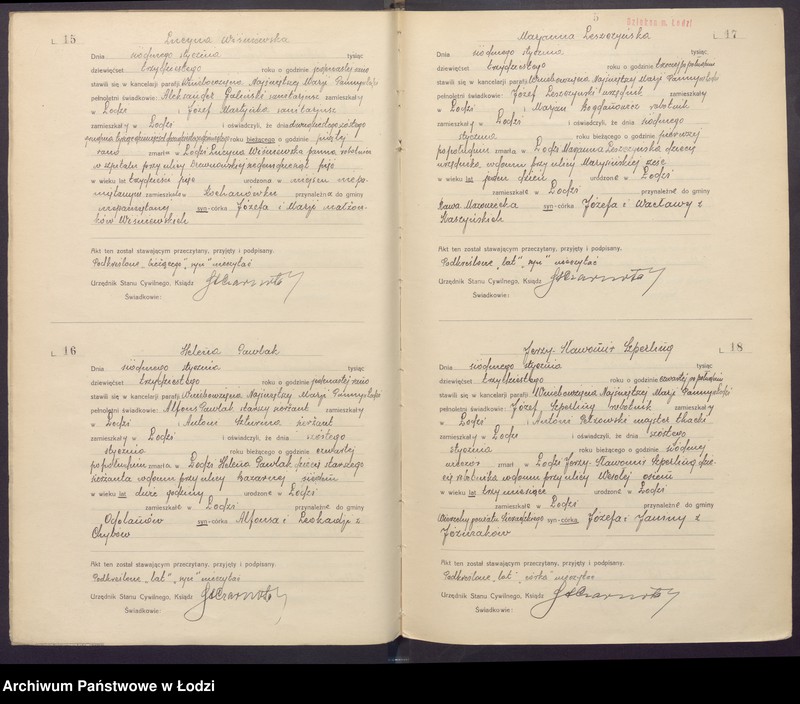 L 15 Lucyna Wiśniewska
Dnia siódmego stycznia tysiąc
dziewięćset trzydziestego roku o godzinie jedenastej rano
stawili się w kancelarji parafji Wniebowzięcia Najświętszej Marji Panny w Łodzi
pełnoletni świadkowie: Aleksander sanitarjusz zamieszkały
w Łodzi i Józef sanitarjusz
zamieszkały w Łodzi i oświadczyli, że dnia dwudziestego szóstego
grudnia roku bieżącego o godzinie piątej
rano zmarła w Łodzi Lucyna Wiśniewska panna robotnica
w szpitalu przy ulicy pięć
w wieku lat trzydzieści pięć urodzona w miejscu niepa-
miętanem zamieszkała w Kochanówku przynależna do gminy
niepamiętanej syn-córka Józefa i Marji małżon-
ków Wiśniewskich
Akt ten został stawającym przeczytany, przyjęty i podpisany.
Podkreślone „bieżącego", „syn" nieczytać
Urzędnik Stanu Cywilnego, Ksiądz
Świadkowie:
L 16 Helena Pawlak
Dnia siódmego stycznia tysiąc
dziewięćset trzydziestego roku o godzinie jedenastej rano
stawili się w kancelarji parafji Wniebowzięcia Najświętszej Marji Panny w Łodzi
pełnoletni świadkowie: Alfons Pawlak starszy sierżant zamieszkały
w Łodzi i Antoni sierżant
zamieszkały w Łodzi i oświadczyli, że dnia szóstego
stycznia roku bieżącego o godzinie czwartej
po południu zmarła w Łodzi Helena Pawlak dziecię starszego
sierżanta w domu przy ulicy siedm
w wieku lat dwie godziny urodzona w Łodzi
zamieszkała w Łodzi przynależna do gminy
Odolanów syn-córka Alfonsa i Leokadji z
Chybów
Akt ten został stawającym przeczytany, przyjęty i podpisany.
Podkreślone „lat", „syn" nieczytać
Urzędnik Stanu Cywilnego, Ksiądz
Świadkowie:
5
Odział m. Łodzi
L 17 Marjanna Leszczyńska
Dnia siódmego stycznia tysiąc
dziewięćset trzydziestego roku o godzinie po południu
stawili się w kancelarji parafji Wniebowzięcia Najświętszej Marji Panny w Łodzi
pełnoletni świadkowie: Józef Leszczyński urzędnik zamieszkały
w Łodzi i Marjan robotnik
zamieszkały w Łodzi i oświadczyli, że dnia siódmego
stycznia roku bieżącego o godzinie pierwszej
po południu zmarła w Łodzi Marjanna Leszczyńska dziecię
urzędnika w domu przy ulicy Marysińskiej sześć
w wieku lat jeden dzień urodzona w Łodzi
zamieszkała w Łodzi przynależna do gminy
Rawa Mazowiecka syn-córka Józefa i Wacławy z
Kaszyńskich
Akt ten został stawającym przeczytany, przyjęty i podpisany.
Podkreślone „lat", „syn" nieczytać
Urzędnik Stanu Cywilnego, Ksiądz
Świadkowie:
L 18 Jerzy-Sławomir Szperling
Dnia siódmego stycznia tysiąc
dziewięćset trzydziestego roku o godzinie czwartej po południu
stawili się w kancelarji parafji Wniebowzięcia Najświętszej Marji Panny w Łodzi
pełnoletni świadkowie: Józef Szperling robotnik zamieszkały
w Łodzi i Antoni Pietrowski majster tkacki
zamieszkały w Łodzi i oświadczyli, że dnia szóstego
stycznia roku bieżącego o godzinie siódmej
wieczór zmarł w Łodzi Jerzy-Sławomir Szperling dzie-
cię robotnika w domu przy ulicy Wesołej osiem
w wieku lat trzy miesiące urodzone w Łodzi
zamieszkałe w Łodzi przynależne do gminy
powiatu Sieradzkiego syn-córka Józefa i Janiny z
Józwiaków
Akt ten został stawającym przeczytany, przyjęty i podpisany.
Podkreślone „lat", „córka" nieczytać
Urzędnik Stanu Cywilnego, Ksiądz
Świadkowie:
Archiwum Państwowe w Łodzi